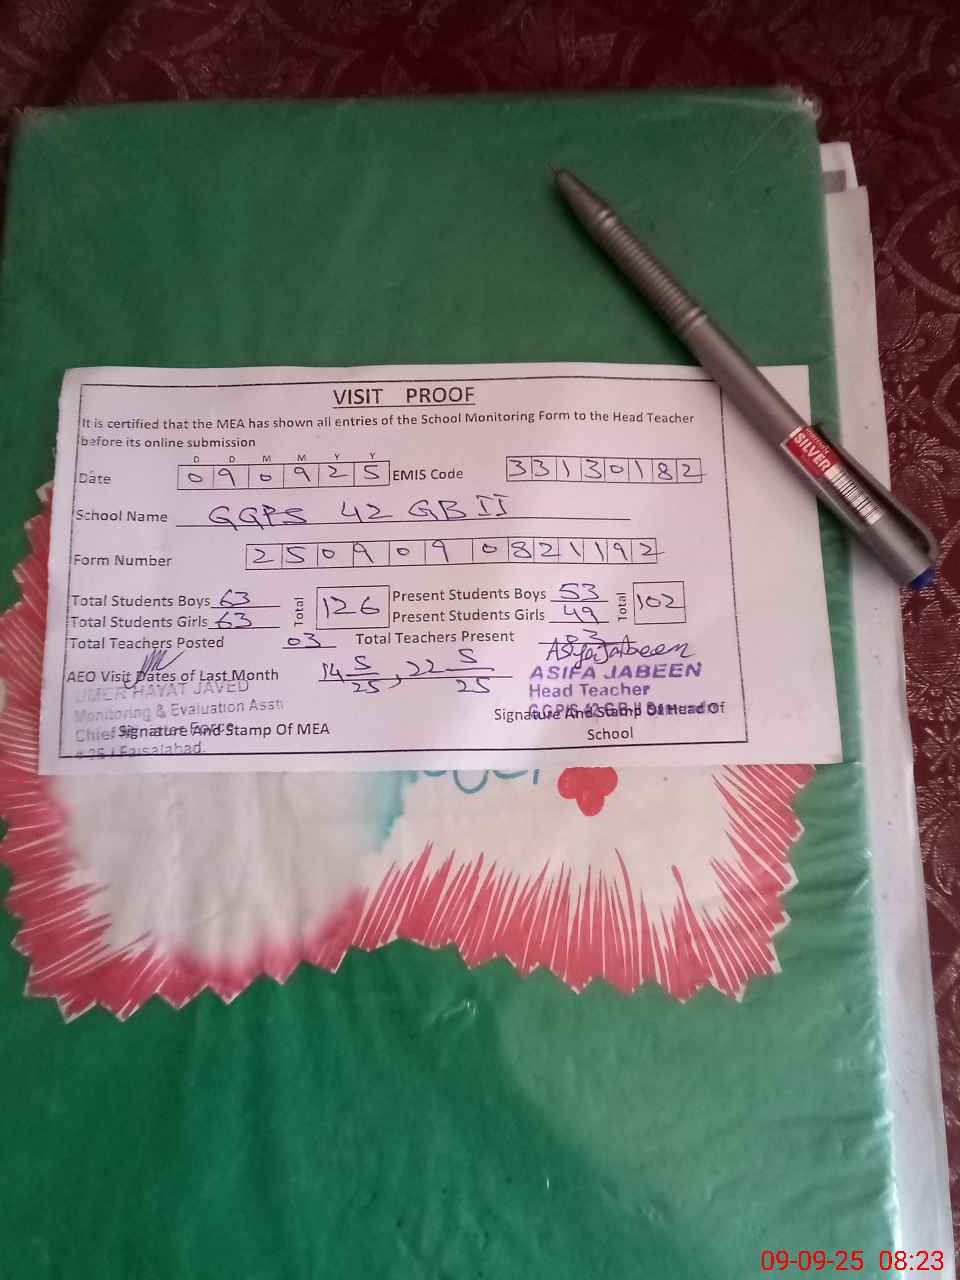 VISIT PROOF
It is certified that the MEA has shown all entries of the School Monitoring Form to the Head Teacher
before its online submission
D D M M Y Y
Date 0 9 0 9 2 5 EMIS Code 3 3 1 3 0 1 8 2
School Name GGPS 42 GB II
Form Number 2 5 0 9 0 9 0 8 2 1 1 9 2
Total Students Boys 63 Total 126 Present Students Boys 53 Total 102
Total Students Girls 63 Present Students Girls 49
Total Teachers Posted 03 Total Teachers Present 03
Asifa Jabeen
AEO Visit Dates of Last Month 14 5/25, 22 5/25
ASIFA JABEEN
UMER HAYAT JAVED
Head Teacher
Monitoring & Evaluation Asstt
Signature And Stamp Of Head Of
School
Signature And Stamp Of MEA
Faisalabad.
SILVER
09-09-25 08:23